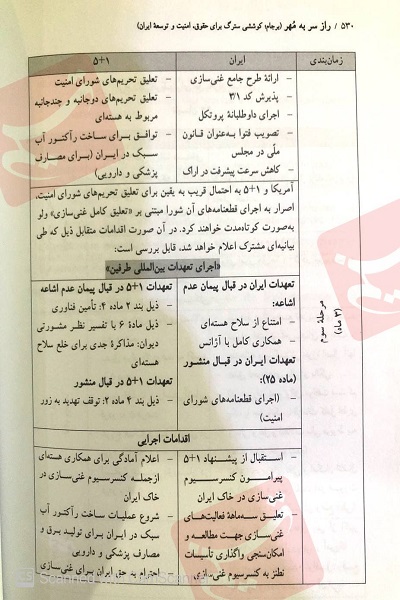 ۵۳۰ / راز سر به مُهر (برجام؛ کوششی سترگ برای حقوق، امنیت و توسعهٔ ایران)
زمان‌بندی
ایران
۵+۱
- ارائهٔ طرح جامع غنی‌سازی
- پذیرش کد ۳/۱
- اجرای داوطلبانهٔ پروتکل
- تصویب فتوا به‌عنوان قانون
ملّی در مجلس
- کاهش سرعت پیشرفت در اراک
- تعلیق تحریم‌های شورای امنیت
- تعلیق تحریم‌های دوجانبه و چندجانبه
مربوط به هسته‌ای
- توافق برای ساخت رآکتور آب
سبک در ایران (برای مصارف
پزشکی و دارویی)
مرحلهٔ سوم
(۳ ماه)
آمریکا و ۵+۱ به احتمال قریب به یقین برای تعلیق تحریم‌های شورای امنیت،
اصرار به اجرای قطعنامه‌های آن شورا مبتنی بر «تعلیق کامل غنی‌سازی» ولو
به‌صورت کوتاه‌مدت خواهند کرد. در آن صورت اقدامات متقابل ذیل که طی
بیانیه‌ای مشترک اعلام خواهد شد، قابل بررسی است:
«اجرای تعهدات بین‌المللی طرفین»
تعهدات ایران در قبال پیمان عدم
اشاعه:
- امتناع از سلاح هسته‌ای
- همکاری کامل با آژانس
تعهدات ایران در قبال منشور
(ماده ۲۵):
- (اجرای قطعنامه‌های شورای
امنیت)
تعهدات ۵+۱ در قبال پیمان عدم اشاعه
- ذیل بند ۲ ماده ۴: تأمین فناوری
- ذیل مادهٔ ۶ با تفسیر نظر مشورتی
دیوان: مذاکرهٔ جدی برای خلع سلاح
هسته‌ای
تعهدات ۵+۱ در قبال منشور
- ذیل بند ۴ ماده ۲: توقف تهدید به زور
اقدامات اجرایی
- استقبال از پیشنهاد ۵+۱
پیرامون کنسرسیوم
غنی‌سازی در خاک ایران
- تعلیق سه‌ماههٔ فعالیت‌های
غنی‌سازی جهت مطالعه و
امکان‌سنجی واگذاری تأسیسات
نطنز به کنسرسیوم غنی‌سازی
- اعلام آمادگی برای همکاری هسته‌ای
ازجمله کنسرسیوم غنی‌سازی در
خاک ایران
- شروع عملیات ساخت رآکتور آب
سبک در ایران برای تولید برق و
مصارف پزشکی و دارویی
احترام به حق ایران برای غنی‌سازی